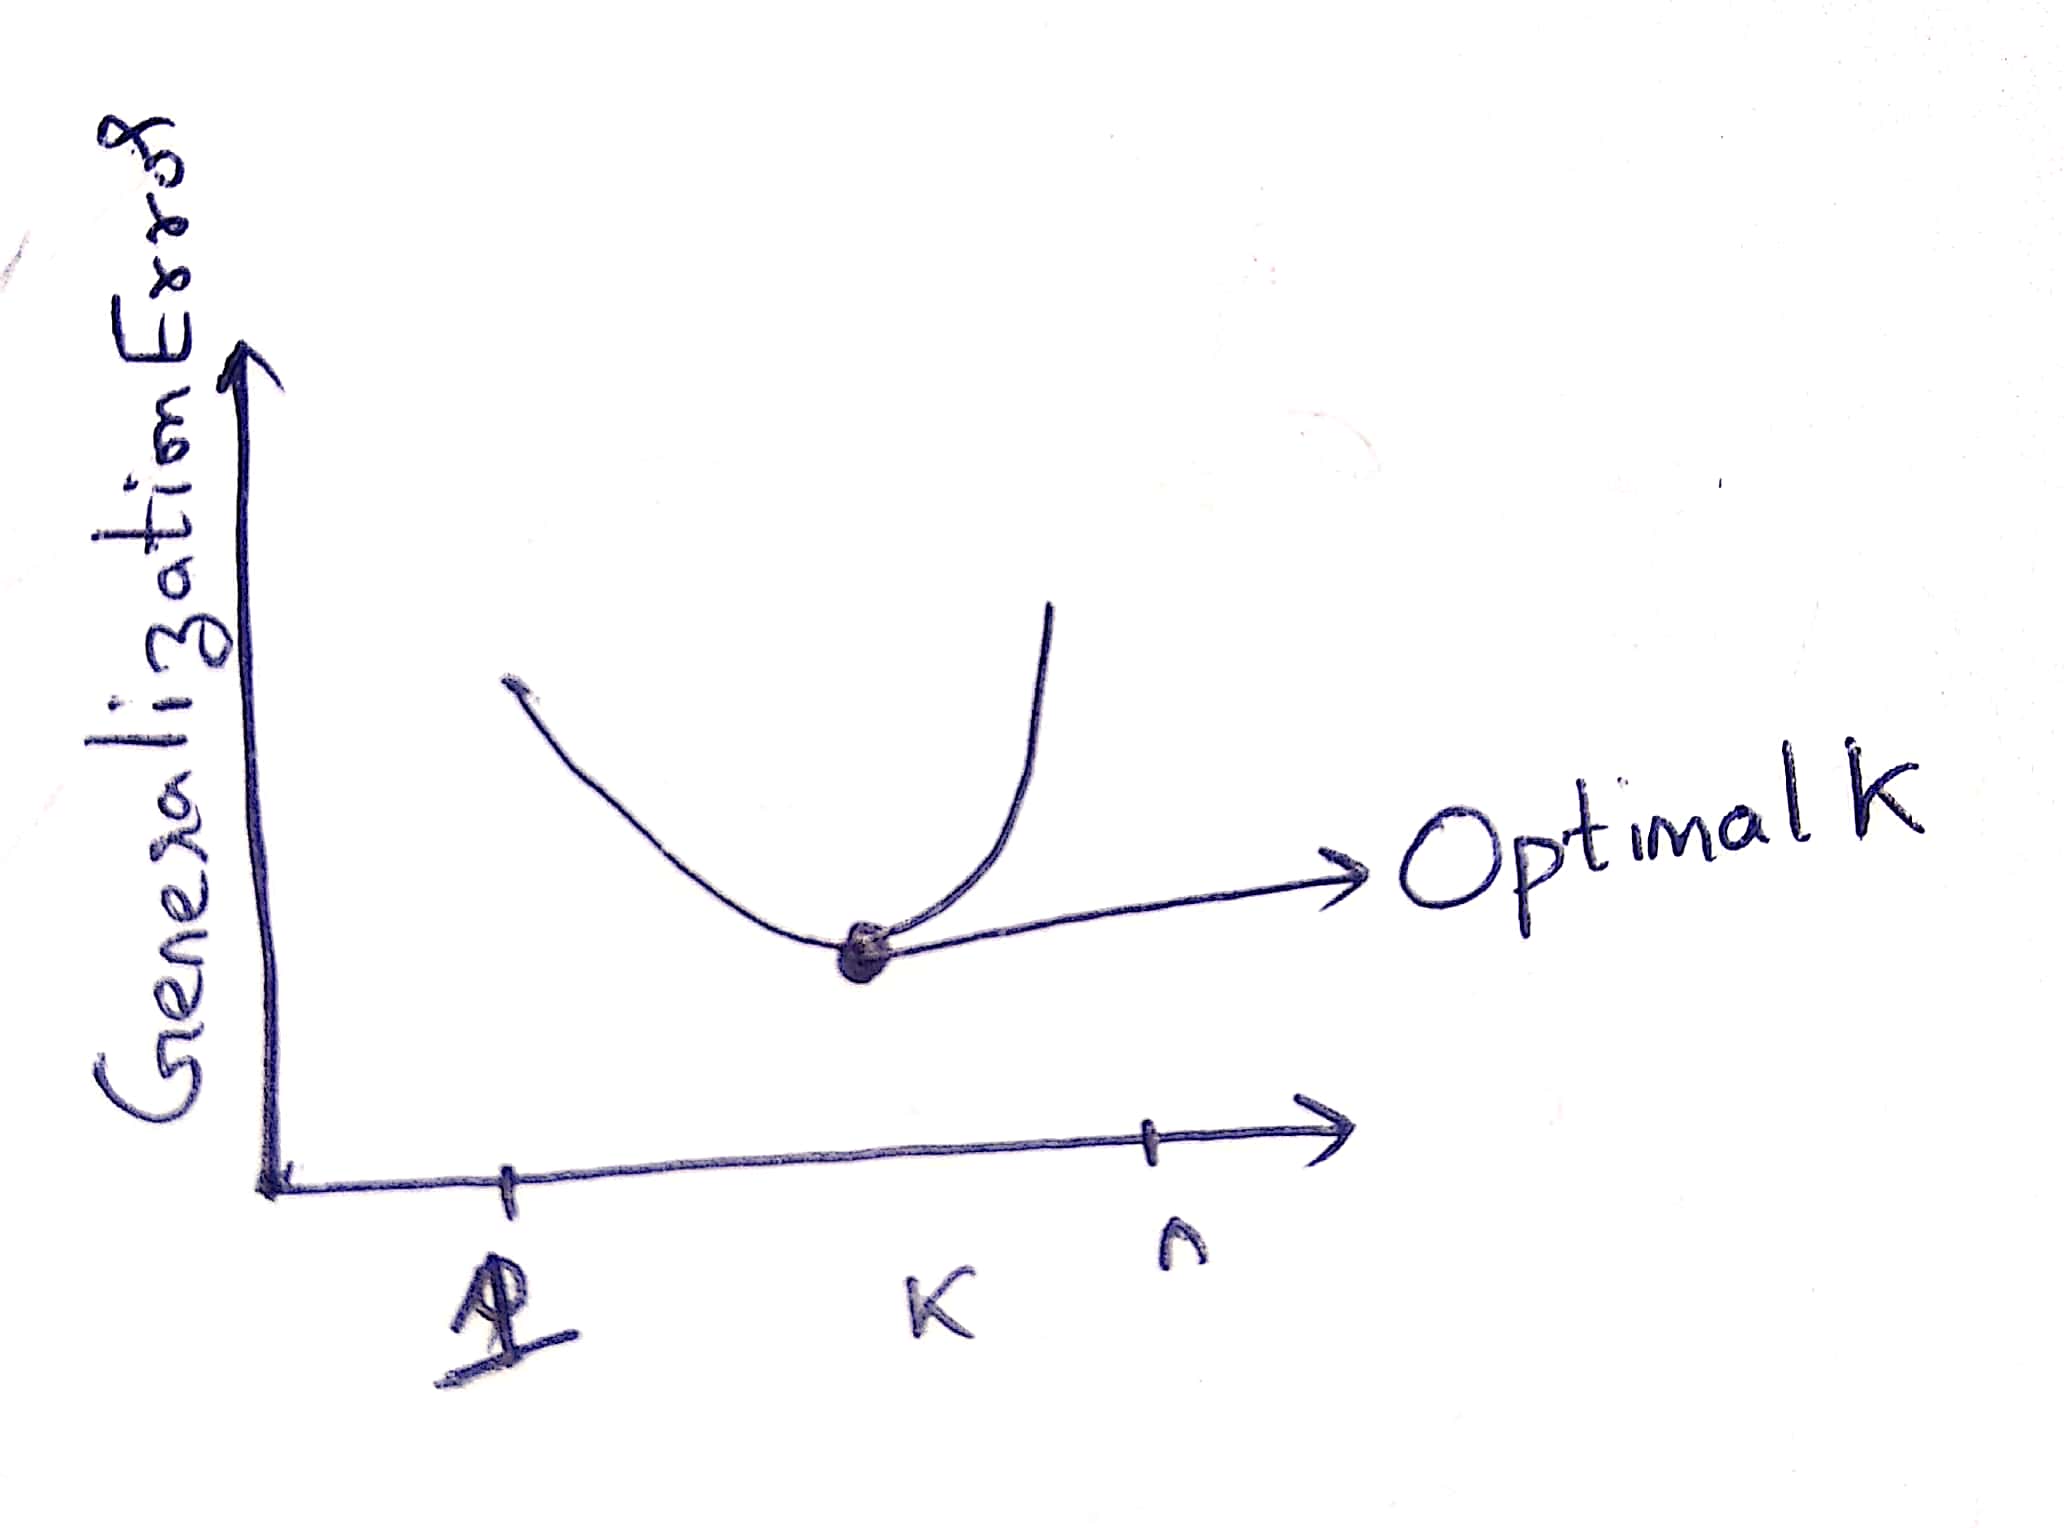 Generalization Error
Optimal K
1
K
n